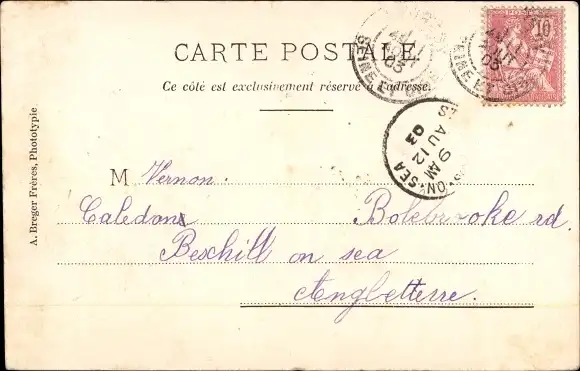 CARTE POSTALE
Ce côté est exclusivement réservé à l'adresse.
10
SEINE ET
03
9 AM
AU 12
03
ON-SEA
M Vernon.
Caledon Bolebrooke rd.
Bexhill on sea
Angleterre.
A. Breger Frères, Phototypie